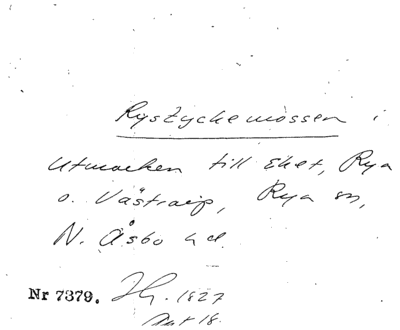 Rystyckemossen i
Utmarken till Eket, Rya
o. Västraip, Rya sn,
N. Åsbo hd.
Nr 7379. 1827
Akt 18.